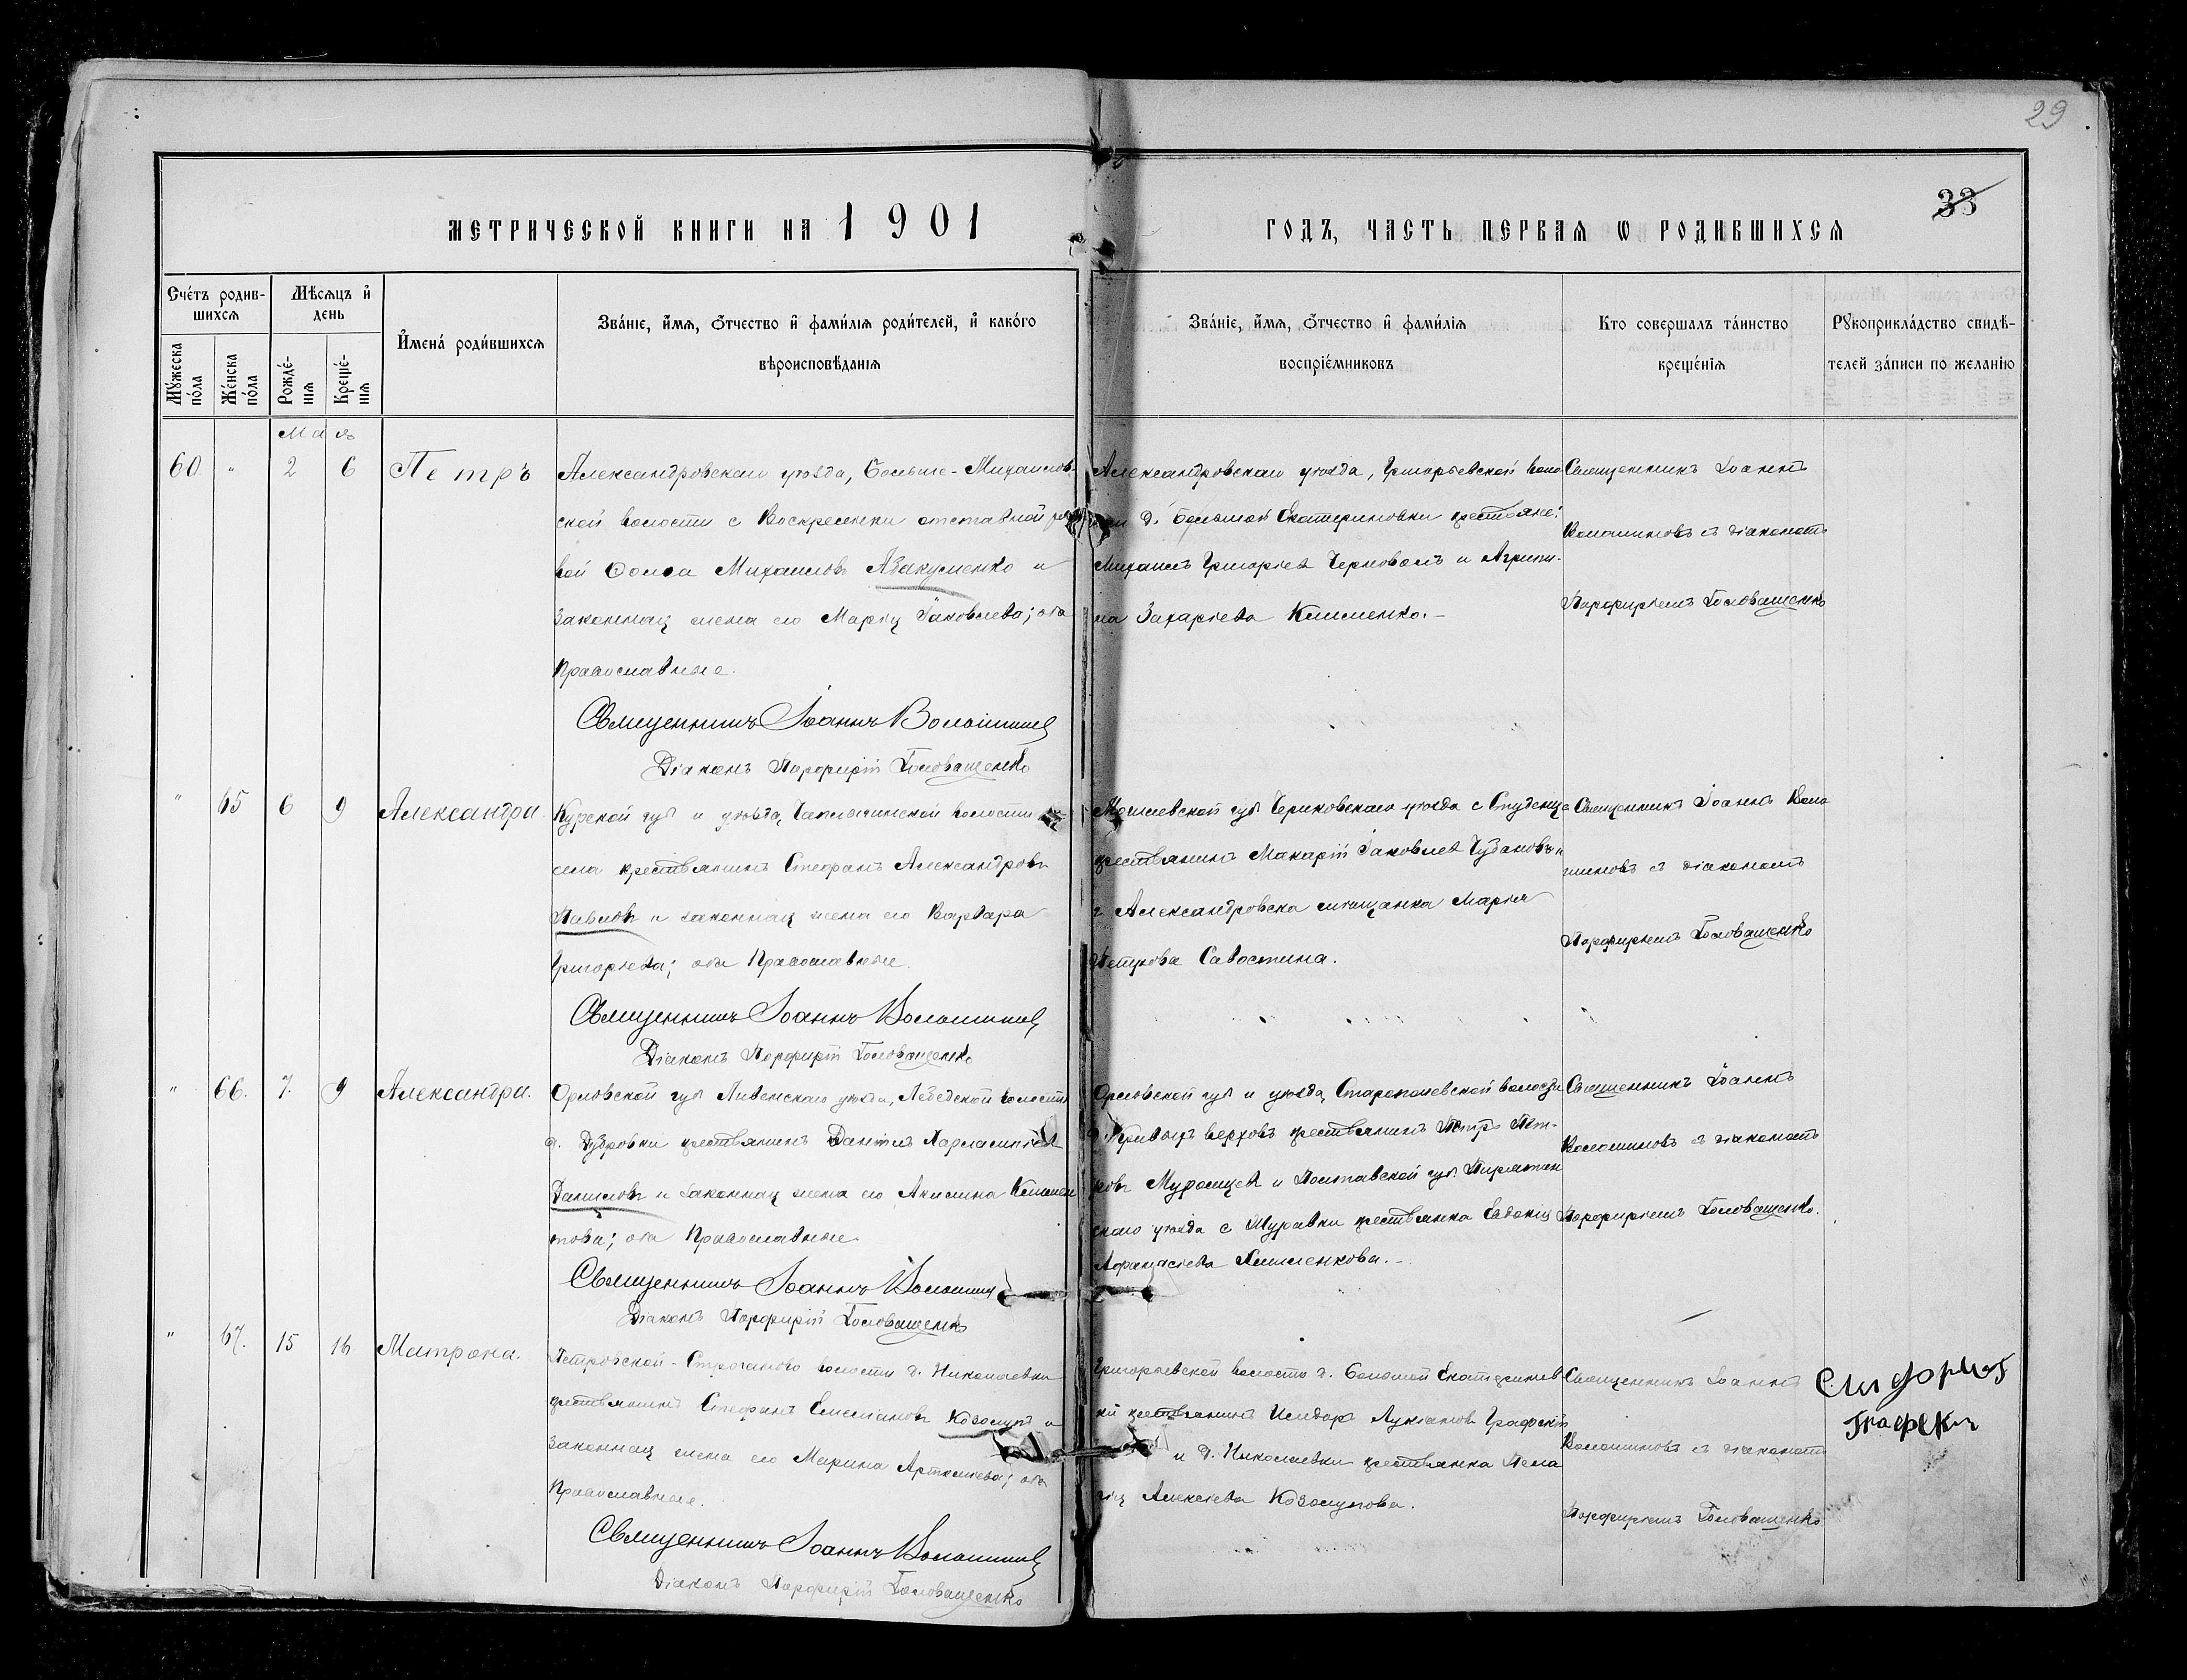 29
33
МЕТРИЧЕСКОЙ КНИГИ НА 1901
ГОДЪ, ЧАСТЬ ПЕРВАЯ Ѡ РОДИВШИХСЯ
Счетъ родив-
шихся
Мѣсяцъ и
день
Мужеска
пола
Женска
пола
Рожде-
нія
Креще-
нія
Имена родившихся
Званіе, имя, отчество и фамилія родителей, и какого
вѣроисповѣданія
Званіе, имя, отчество и фамилія
воспріемниковъ
Кто совершалъ таинство
крещенія
Рукоприкладство свидѣ-
телей записи по желанію
Мая
60 " 2 6 Петръ
Александровскаго уѣзда, Больше-Михайлов-
ской волости с Воскресенки отставной
вой Ѳома Михаиловъ Абакуменко и
законная жена его Марія Іаковлева; оба
Православные.
Священникъ Іоаннъ Волошинов
Діаконъ Порфирій Головащенко
Александровскаго уѣзда, Григорьевской воло
д. Большой Екатериновки крестьяне:
Михаилъ Григорьев Черноволъ и Агрипи-
на Захаріева Клименко.-
Священникъ Іоаннъ
Волошиновъ съ діакономъ
Порфиріемъ Головащенко
" 65 6 9 Александра
Курской губ и уѣзда, волости
села крестьянинъ Стефанъ Александровъ
Павловъ и законная жена его Варвара
Григорьева; оба Православные.
Священникъ Іоаннъ Волошинов
Діаконъ Порфирій Головащенко
Могилевской губ Чериковскаго уѣзда с Студенца
крестьянинъ Макарій Іаковлев Чубановъ и
г Александровска мѣщанка Марія
Петрова Савостина.
Священникъ Іоаннъ Воло
шиновъ съ діакономъ
Порфиріемъ Головащенко
" 66. 7. 9 Александра.
Орловской губ Ливенскаго уѣзда, Лебедской волости
д. Дубровки крестьянинъ Даніилъ Харлампіев
Даниловъ и законная жена его Акилина Климен
това; оба Православные
Священникъ Іоаннъ Волошин
Діаконъ Порфирій Головащенко
Орловской губ и уѣзда, волости
Кривыхъ верховъ крестьянинъ Петръ Пет-
ровъ Муромцев и Полтавской губ. Пирятин
скаго уѣзда с крестьянка Евдокія
Аѳанасіева Клименкова.-
Священникъ Іоаннъ
Волошиновъ съ діакономъ
Порфиріемъ Головащенко.
" 67. 15 16 Матрона.
Петровской-Строганово волости д. Николаевки
крестьянинъ Стефанъ Емеліановъ Козолупъ и
законная жена его Марина Артеміева; оба
Православные.
Священникъ Іоаннъ Волошинов
Діаконъ Порфирій Головащенко
Григорьевской волости д. Большой Екатеринов
ки крестьянинъ Исидоръ Лукіановъ Графскій
и д. Николаевки крестьянка Пела
гія Алексіева Козолупова.
Священникъ Іоаннъ
Волошиновъ съ діакономъ
Порфиріемъ Головащенко